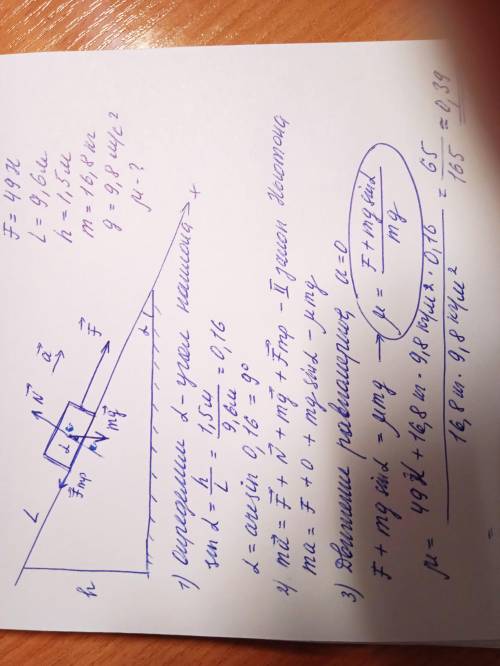 F = 49 Н
L = 9,6 м
h = 1,5 м
m = 16,8 кг
g = 9,8 м/с²
μ - ?
L
h
N
a
F
Fтр
mg
α
α
+
1) определим α - угол наклона
sin α = h/L = 1,5м/9,6м = 0,16
α = arcsin 0,16 = 9°
2) ma = F + N + mg + Fтр - II закон Ньютона
ma = F + 0 + mg sin α - μmg
3) Движение равномерно a = 0
F + mg sin α = μmg → μ = (F + mg sin α)/mg
μ = (49Н + 16,8 кг · 9,8 м/с² · 0,16)/(16,8 кг · 9,8 м/с²) = 65/165 = 0,39
=